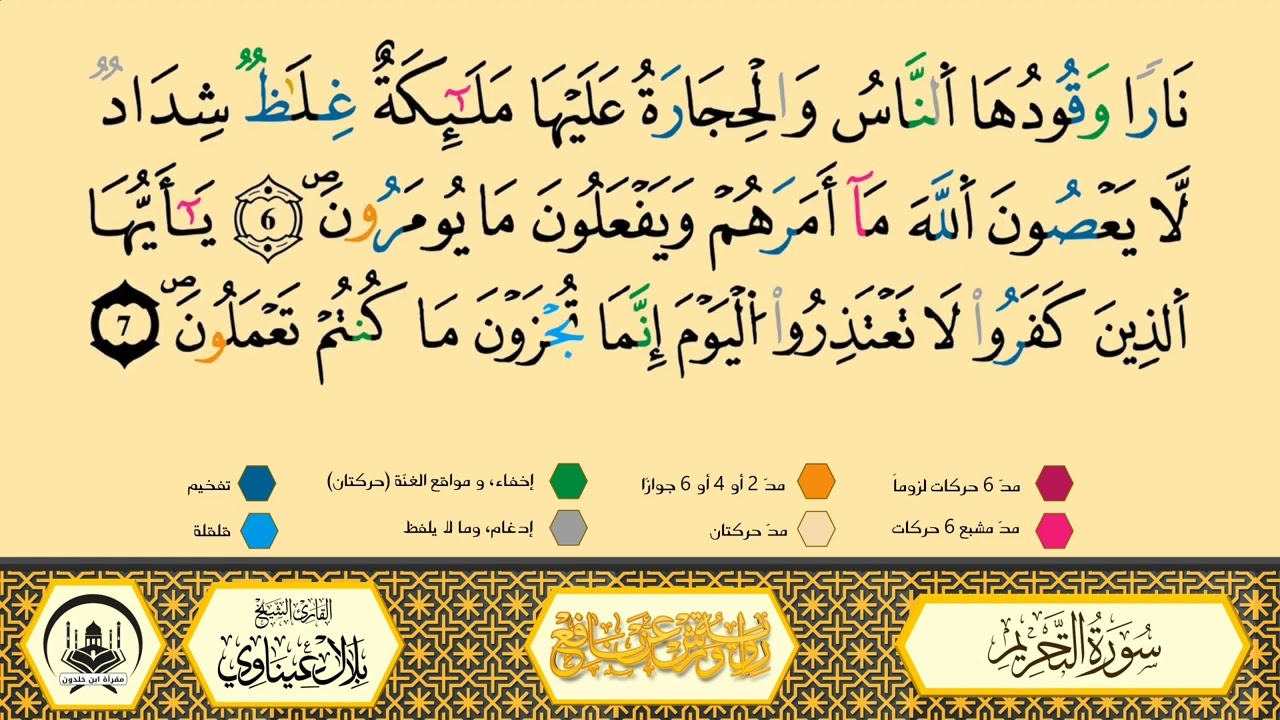 نَارًا وَقُودُهَا اَ۬لنَّاسُ وَالْحِجَارَةُ عَلَيْهَا مَلَٰٓئِكَةٌ غِلَٰظٌ شِدَادٌ
لَّا يَعْصُونَ اَ۬للَّهَ مَآ أَمَرَهُمْ وَيَفْعَلُونَ مَا يُومَرُونَۖ 6 يَٰٓأَيُّهَا
اَ۬لذِينَ كَفَرُواْ لَا تَعْتَذِرُواْ اُ۬لْيَوْمَ إِنَّمَا تُجْزَوْنَ مَا كُنتُمْ تَعْمَلُونَۖ 7
مدّ 6 حركات لزوماً مدّ 2 أو 4 أو 6 جوازًا إخفاء، و مواقع الغنّة (حركتان) تفخيم
مدّ مشبع 6 حركات مدّ حركتان إدغام، وما لا يلفظ قلقلة
سُورَةُ التَّحْرِيمِ
رواية ورش عن نافع
القارئ الشيخ
بلال عيناوي
مقرأة ابن خلدون